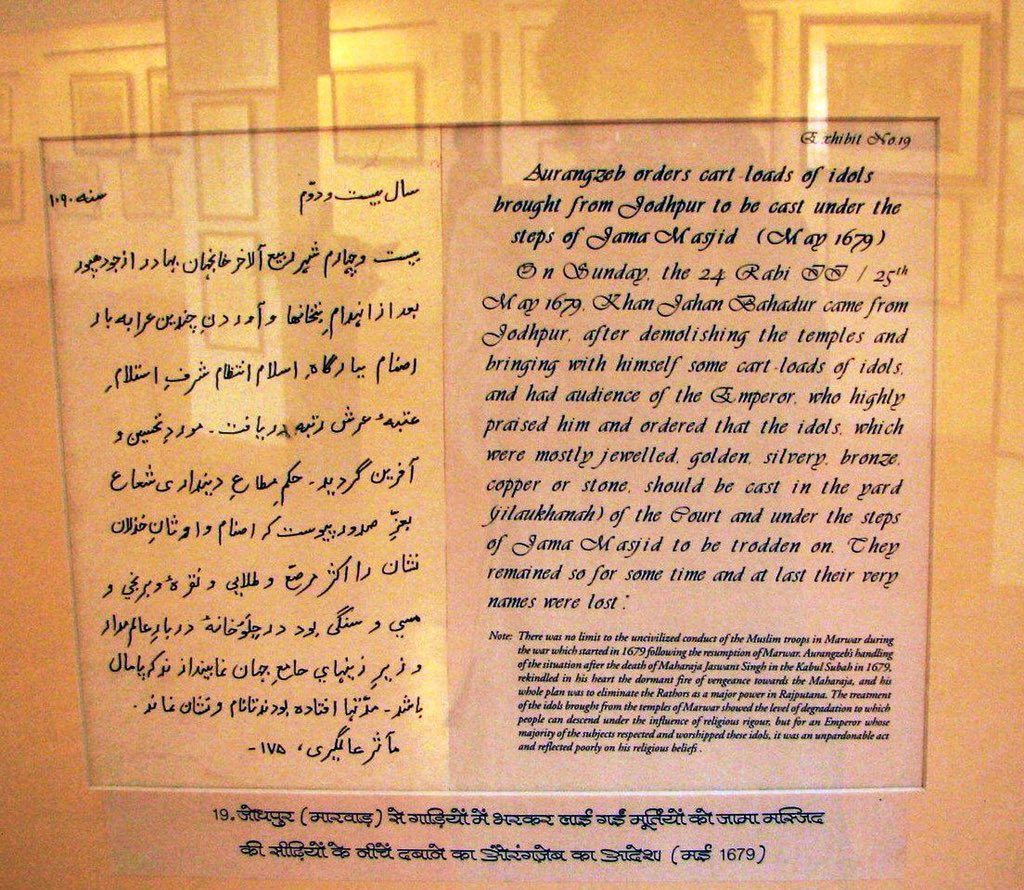 سال بیست و دوّم سنه ۱۰۹۰
بیست و چهارم شهر ربیع الآخر خانجهان بهادر از جودهپور
بعد از انهدامِ بتخانها و آوردنِ چندین عرابه بار
اصنام ببارگاهِ اسلام انتظام شرفِ استلامِ
عتبهٔ عرش رتبه دریافت۔ موردِ تحسین و
آفرین گردید۔ حکمِ مطاعِ دینداری شعاع
بعزِّ صدور پیوست که اصنام و اوثانِ خذلان
نشان را اکثر مرصّع و طلایی و نقرهٔ و برنجی و
مسی و سنگی بود در جلوُخانهٔ دربارِ عالم مدار
و زیرِ زینهایِ جامع جهان نما بینداز ند که پامال
باشد۔ مدّتها افتاده بودند تا نام و نشان نماند ۰
مآثر عالمگیری، ۱۷۵ -
Exhibit No.19
Aurangzeb orders cart-loads of idols
brought from Jodhpur to be cast under the
steps of Jama Masjid (May 1679)
On Sunday, the 24 Rabi II / 25th
May 1679, Khan Jahan Bahadur came from
Jodhpur, after demolishing the temples and
bringing with himself some cart-loads of idols,
and had audience of the Emperor, who highly
praised him and ordered that the idols, which
were mostly jewelled, golden, silvery, bronze,
copper or stone, should be cast in the yard
(jilaukhanah) of the Court and under the steps
of Jama Masjid to be trodden on. They
remained so for some time and at last their very
names were lost:
Note: There was no limit to the uncivilized conduct of the Muslim troops in Marwar during
the war which started in 1679 following the resumption of Marwar. Aurangzeb's handling
of the situation after the death of Maharaja Jaswant Singh in the Kabul Subah in 1679,
rekindled in his heart the dormant fire of vengeance towards the Maharaja, and his
whole plan was to eliminate the Rathors as a major power in Rajputana. The treatment
of the idols brought from the temples of Marwar showed the level of degradation to which
people can descend under the influence of religious rigour, but for an Emperor whose
majority of the subjects respected and worshipped these idols, it was an unpardonable act
and reflected poorly on his religious beliefs .
19. जोधपुर (मारवाड़) से गाड़ियों में भरकर लाई गई मूर्तियों को जामा मस्जिद
की सीढ़ियों के नीचें दबाने का औरंगज़ेब का आदेश (मई 1679)